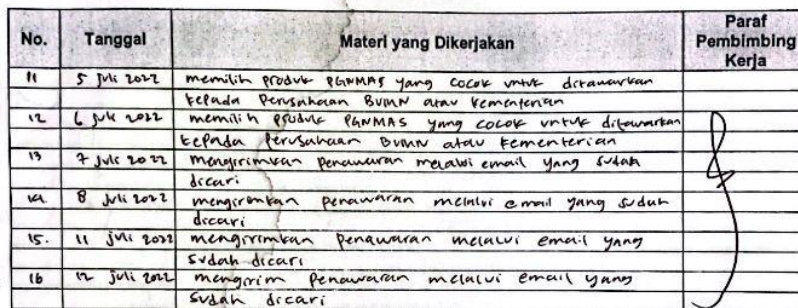 No. Tanggal Materi yang Dikerjakan Paraf Pembimbing Kerja
11 5 Juli 2022 memilih produk PGNMAS yang cocok untuk ditawarkan
kepada Perusahaan BUMN atau kementerian
12 6 Juli 2022 memilih produk PGNMAS yang cocok untuk ditawarkan
kepada Perusahaan BUMN atau kementerian
13 7 Juli 2022 mengirimkan penawaran melalui email yang sudah
dicari
14 8 Juli 2022 mengirimkan penawaran melalui email yang sudah
dicari
15. 11 Juli 2022 mengirimkan penawaran melalui email yang
sudah dicari
16 12 Juli 2022 mengirim penawaran melalui email yang
sudah dicari